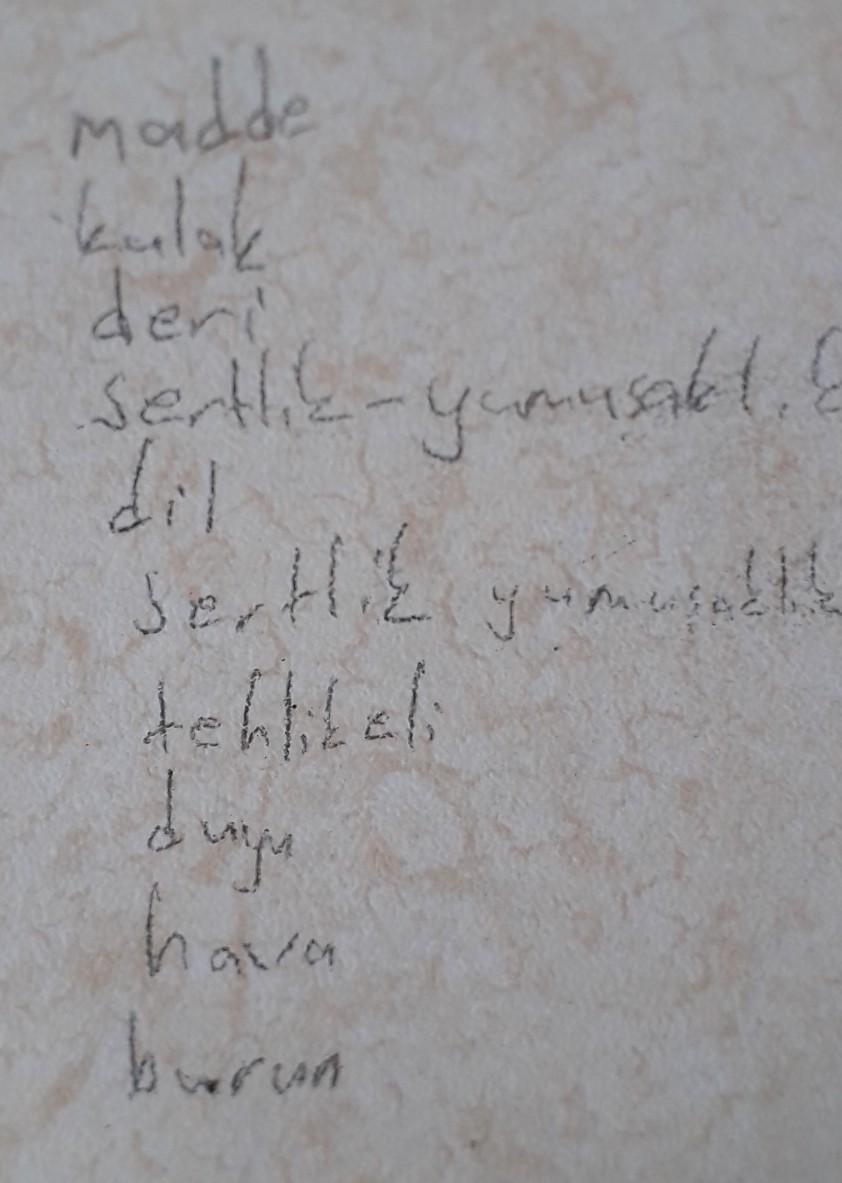 madde
kulak
deri
sertlik-yumusaklık
dil
sertlik yumusaklık
tehlikeli
duyu
hava
burun